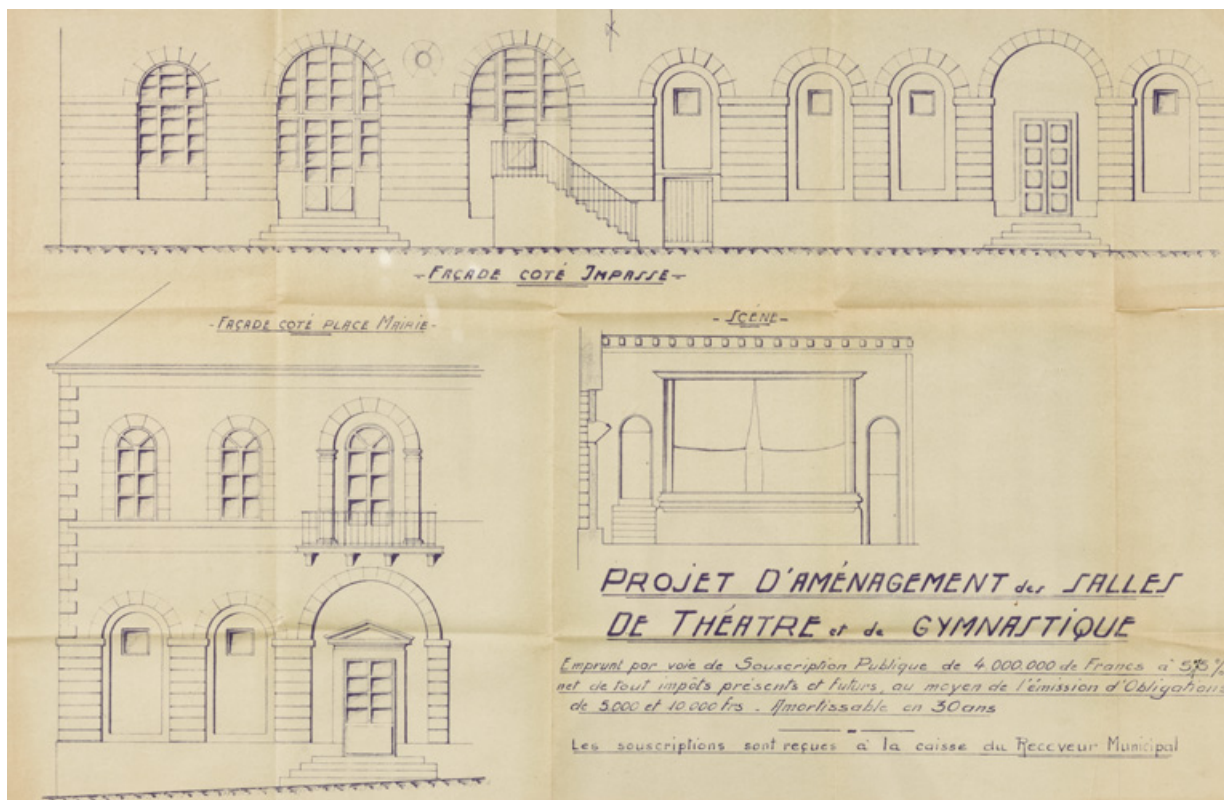 - FAÇADE COTÉ IMPASSE -
- FAÇADE COTÉ PLACE MAIRIE -
- SCÉNE -
PROJET D'AMÉNAGEMENT des SALLES
DE THÉATRE et de GYMNASTIQUE
Emprunt par voie de Souscription Publique de 4.000.000 de Francs à
net de tout impôts présents et futurs, au moyen de l'émission d'Obligations
de 5.000 et 10.000 frs. Amortissable en 30 ans
Les souscriptions sont reçues à la caisse du Receveur Municipal